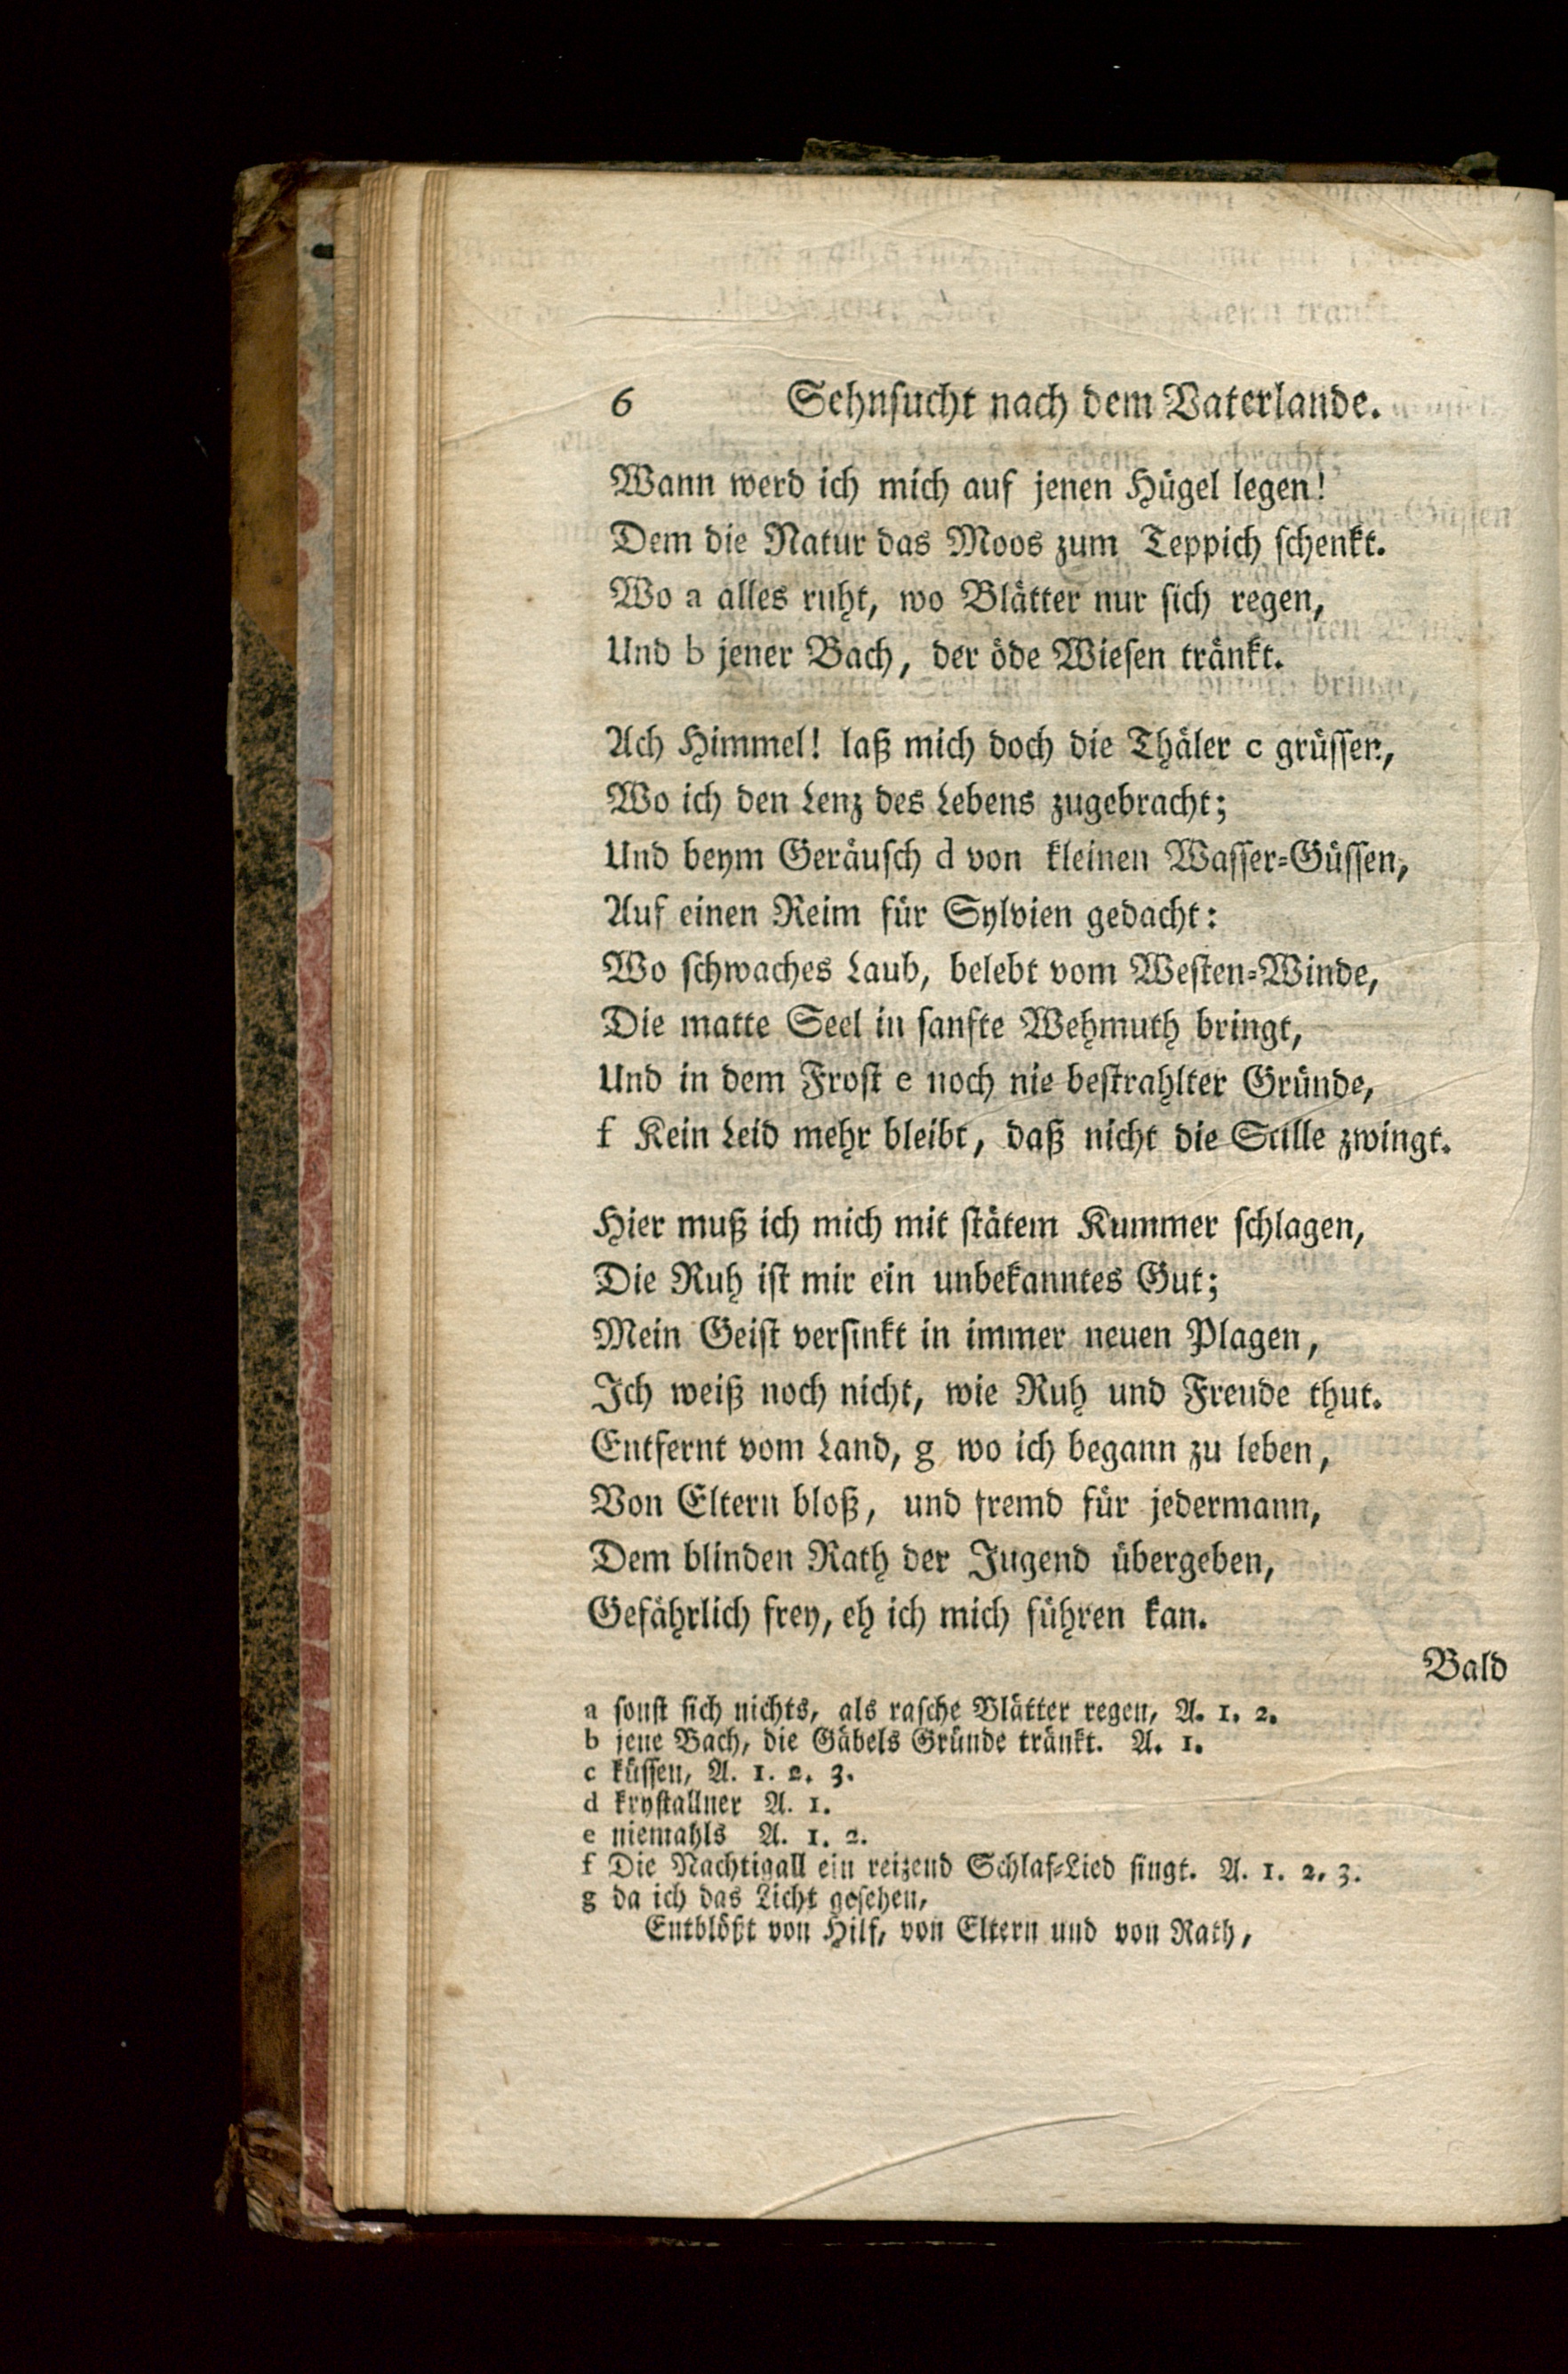 6 Sehnsucht nach dem Vaterlande.
Wann werd ich mich auf jenen Hügel legen!
Dem die Natur das Moos zum Teppich schenkt.
Wo a alles ruht, wo Blätter nur sich regen,
Und b jener Bach, der öde Wiesen tränkt.
Ach Himmel! laß mich doch die Thäler c grüssen,
Wo ich den Lenz des Lebens zugebracht;
Und beym Geräusch d von kleinen Wasser-Güssen,
Auf einen Reim für Sylvien gedacht:
Wo schwaches Laub, belebt vom Westen-Winde,
Die matte Seel in sanfte Wehmuth bringt,
Und in dem Frost e noch nie bestrahlter Gründe,
f Kein Leid mehr bleibt, daß nicht die Stille zwingt.
Hier muß ich mich mit stätem Kummer schlagen,
Die Ruh ist mir ein unbekanntes Gut;
Mein Geist versinkt in immer neuen Plagen,
Ich weiß noch nicht, wie Ruh und Freude thut.
Entfernt vom Land, g wo ich begann zu leben,
Von Eltern bloß, und fremd für jedermann,
Dem blinden Rath der Jugend übergeben,
Gefährlich frey, eh ich mich führen kan.
Bald
a sonst sich nichts, als rasche Blätter regen, A. 1. 2.
b jene Bach, die Gäbels Gründe tränkt. A. 1.
c küssen, A. 1. 2. 3.
d krystallner A. 1.
e niemahls A. 1. 2.
f Die Nachtigall ein reizend Schlaf-Lied singt. A. 1. 2. 3.
g da ich das Licht gesehen,
Entblößt von Hilf, von Eltern und von Rath,